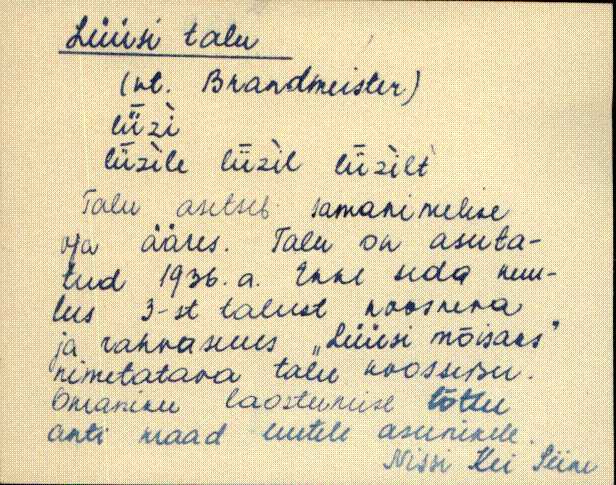 Lüüsi talu
(vt. Brandmeister)
lǖzi
lǖzile lǖzil lǖzilt
Talu asetseb samanimelise
oja ääres. Talu on asuta-
tud 1936. a. Enne seda kuu-
lus 3-st talust koosneva
ja rahvasuus „Lüüsi mõisaks"
nimetatava talu koosseisu.
Omaniku laostumise tõttu
anti maad uutele asunikele.
Nissi Kei